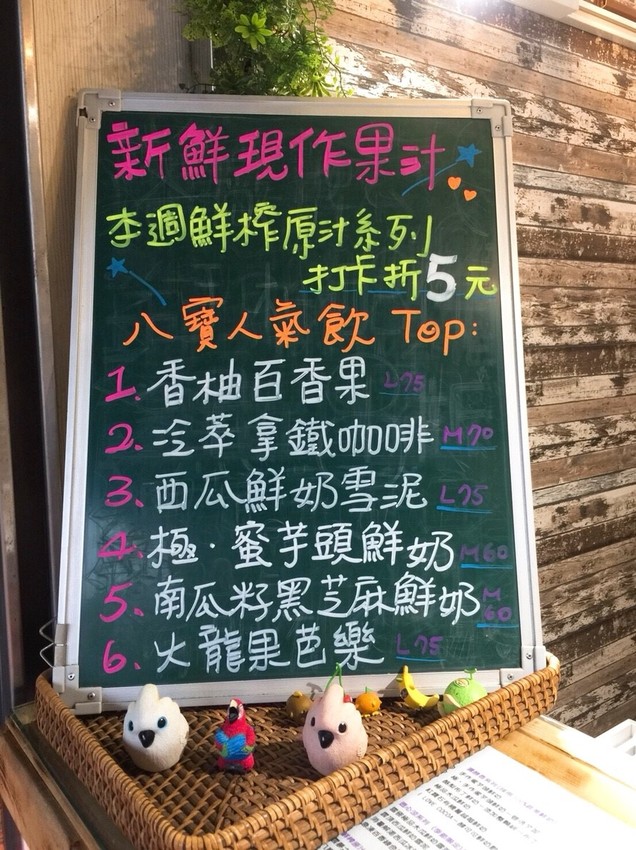 新鮮現作果汁
本週鮮榨原汁系列
打卡折5元
八寶人氣飲 Top:
1. 香柚百香果 L75
2. 冷萃拿鐵咖啡 M70
3. 西瓜鮮奶雪泥 L75
4. 極·蜜芋頭鮮奶 M60
5. 南瓜籽黑芝麻鮮奶 M60
6. 火龍果芭樂 L75